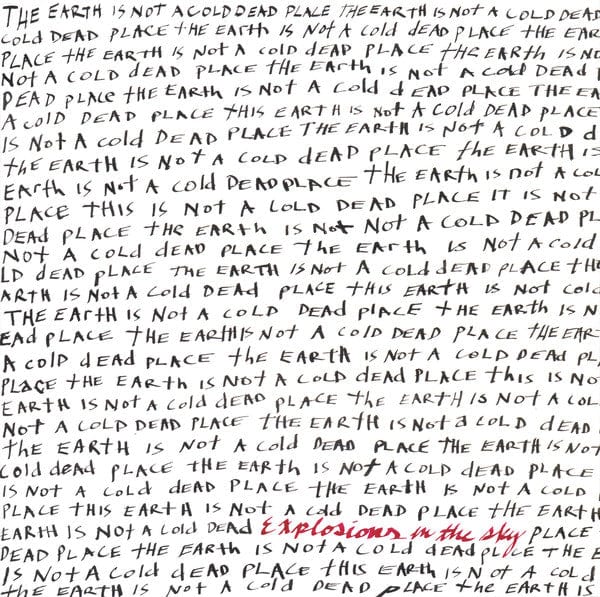 THE EARTH IS NOT A COLD DEAD PLACE THE EARTH IS NOT A COLD DEAD
cold DEAD PLACE tHE EARth IS NOt A cold dEAD PLACE tHE EAR
PLACE tHE EARtH IS NOt A cold dEAD PLACE tHE EARtH IS NO
NOt A COLD dEAD PLACE tHE EARtH IS NOt A cold DEAD
DEAD pLAce tHE EARth IS NOt A Cold dEAD PLACE THE EA
A COlD DEAD PLACE tHIS EARtH IS Not A COld DEAD PLACE
IS NOt A cold DEAD PLACE THE EARtH IS NOt A COLD d
tHE EARtH IS NOt A COLD dEAD PLACE tHE EARtH IS
EARth IS NOt A cold DEADPLACE tHE EARtH IS nOt A COL
PLACE THIS IS NOt A COLD DEAD PLACE IT IS NOt
DEAd PLACE tHE EARtH IS NOt NOt A COLD DEAD PL
NOt A COLD dEAD PLACE tHE EARtH IS NOt A Cold
LD dEAD pLACE THE EARtH IS NOt A COLD dEAD pLACE tHE
ARtH IS NOt A Cold DEAD PLACE tHIS EARtH IS NOt cold
THE EARtH IS NOt A COLD DEAd plACE tHE EARtH IS N
EAd PLACE tHE EARtHIS NOt A COlD DEAD PLACE tHE EAR
A COlD dEAd PLACE tHE EARtH IS NOt A COLD DEAd PL
PLACE tHE EARtH IS NOt A COLD dEAD PLACE tHIS IS NO
EARTH IS NOt A cold dEAD PLACE tHE EARtH IS NOt A COL
NOt A COLD DEAD PLACE tHE EARtH IS NOt a COLD dEAD
tHE EARTH IS NOt A Cold DEAD PLACE THE EARTH IS NOt
COld dEAd PLACE tHE EARtH IS NOt A COLD dEAD PLACE
IS NOt A Cold dEAD PLACE tHE EARtH IS NOt A COLD
PLACE THIS EARtH IS NOt A cold DEAD PLACE tHE EARtH
EARtH IS NOt A COld DEAD Explosions in the sky PLACE
DEAD PLACE tHE EARtH IS NOt A COLD dEAdpLACE tHE E
IS NOt A COLD dEAD PLACE tHIS EARtH IS NOt A COLD
tHE EARtH IS NOt A Cold DEAD PLACE tHE EARtH IS